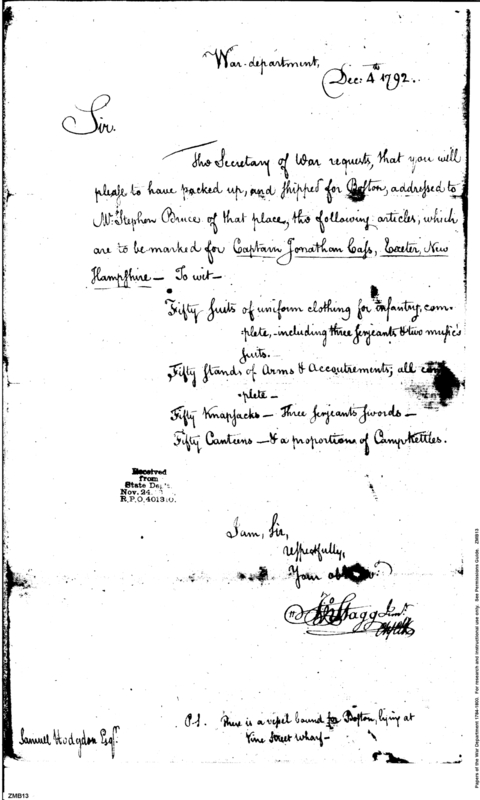 War-department,
Dec: 4th 1792.
Sir.
The Secretary of War requests, that you will
please to have packed up, and shipped for Boston, addressed to
Mr. Stephen Bruce of that place, the following articles, which
are to be marked for Captain Jonathan Cass, Exeter, New
Hampshire — To wit—
Fifty suits of uniform clothing for infantry, com-
plete,-including three Serjeants & two music's
suits.
Fifty Stands of Arms & Accoutrements, all com
plete —
Fifty Knapsacks — Three Serjeants Swords —
Fifty Canteens — & a proportions of Camp Kettles.
Received
from
State Dep't.
Nov. 24.
R.P.O. 401310.
I am, Sir,
respectfully,
Your
Jno Stagg Junr.
P.S. There is a vessel bound for Boston, lying at
Vine Street wharf—
Samuel Hodgdon Esqr.
Papers of the War Department 1784-1800. For research and instructional use only. See Permissions Guide. ZMB13
ZMB13